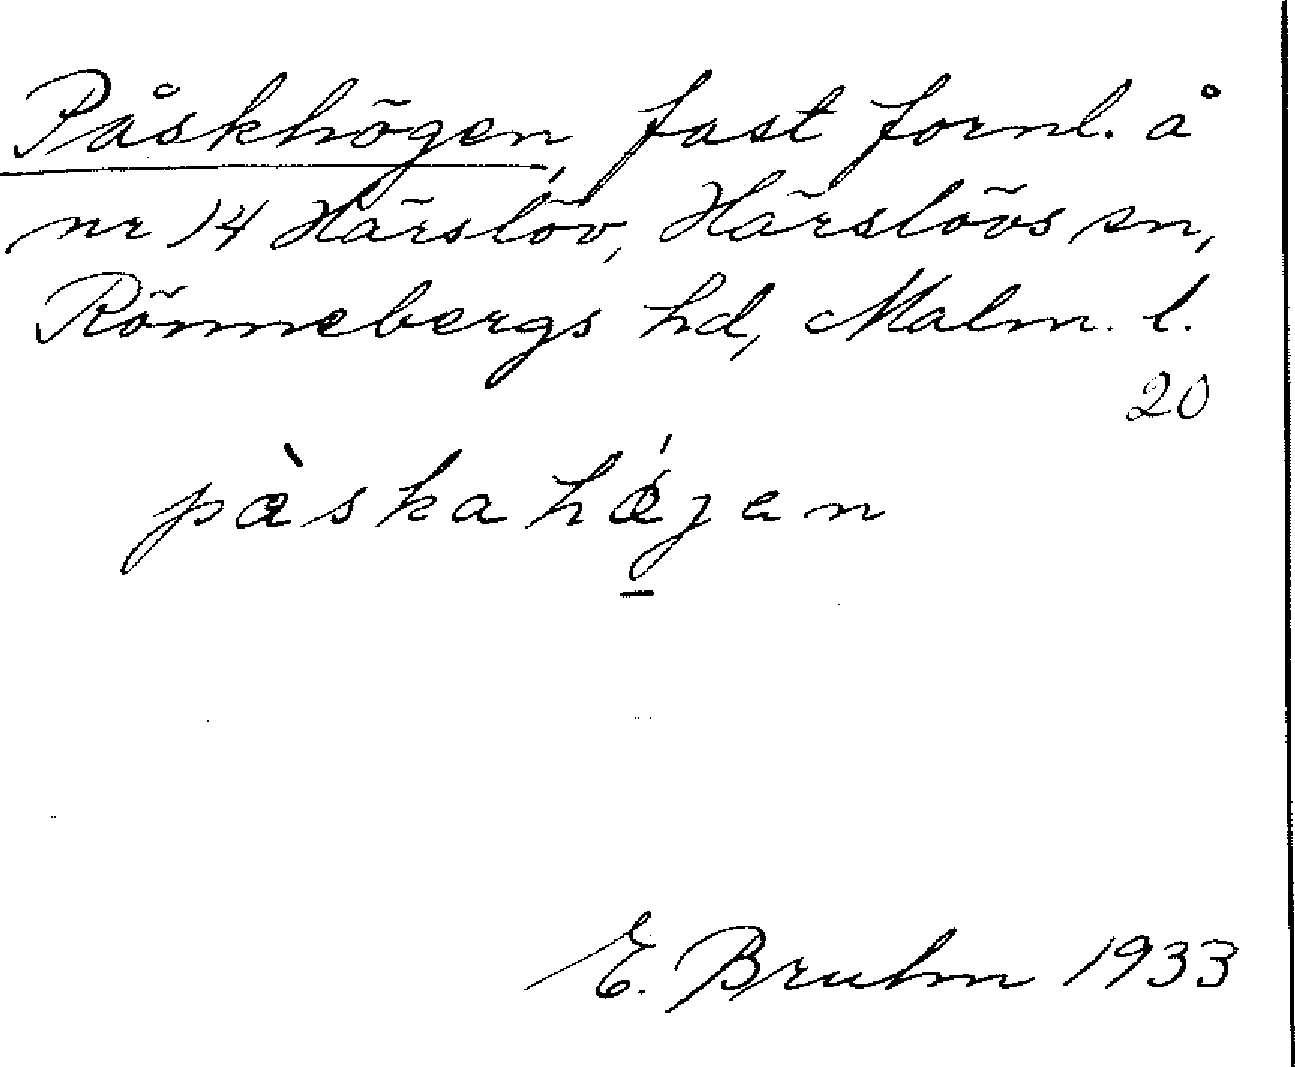 Påskhögen, fast fornl. å
nr 14 Härslöv, Härslövs sn,
Rönnebergs hd, Malm. l.
20
pæ̀skahǿjen
E. Bruhn 1933